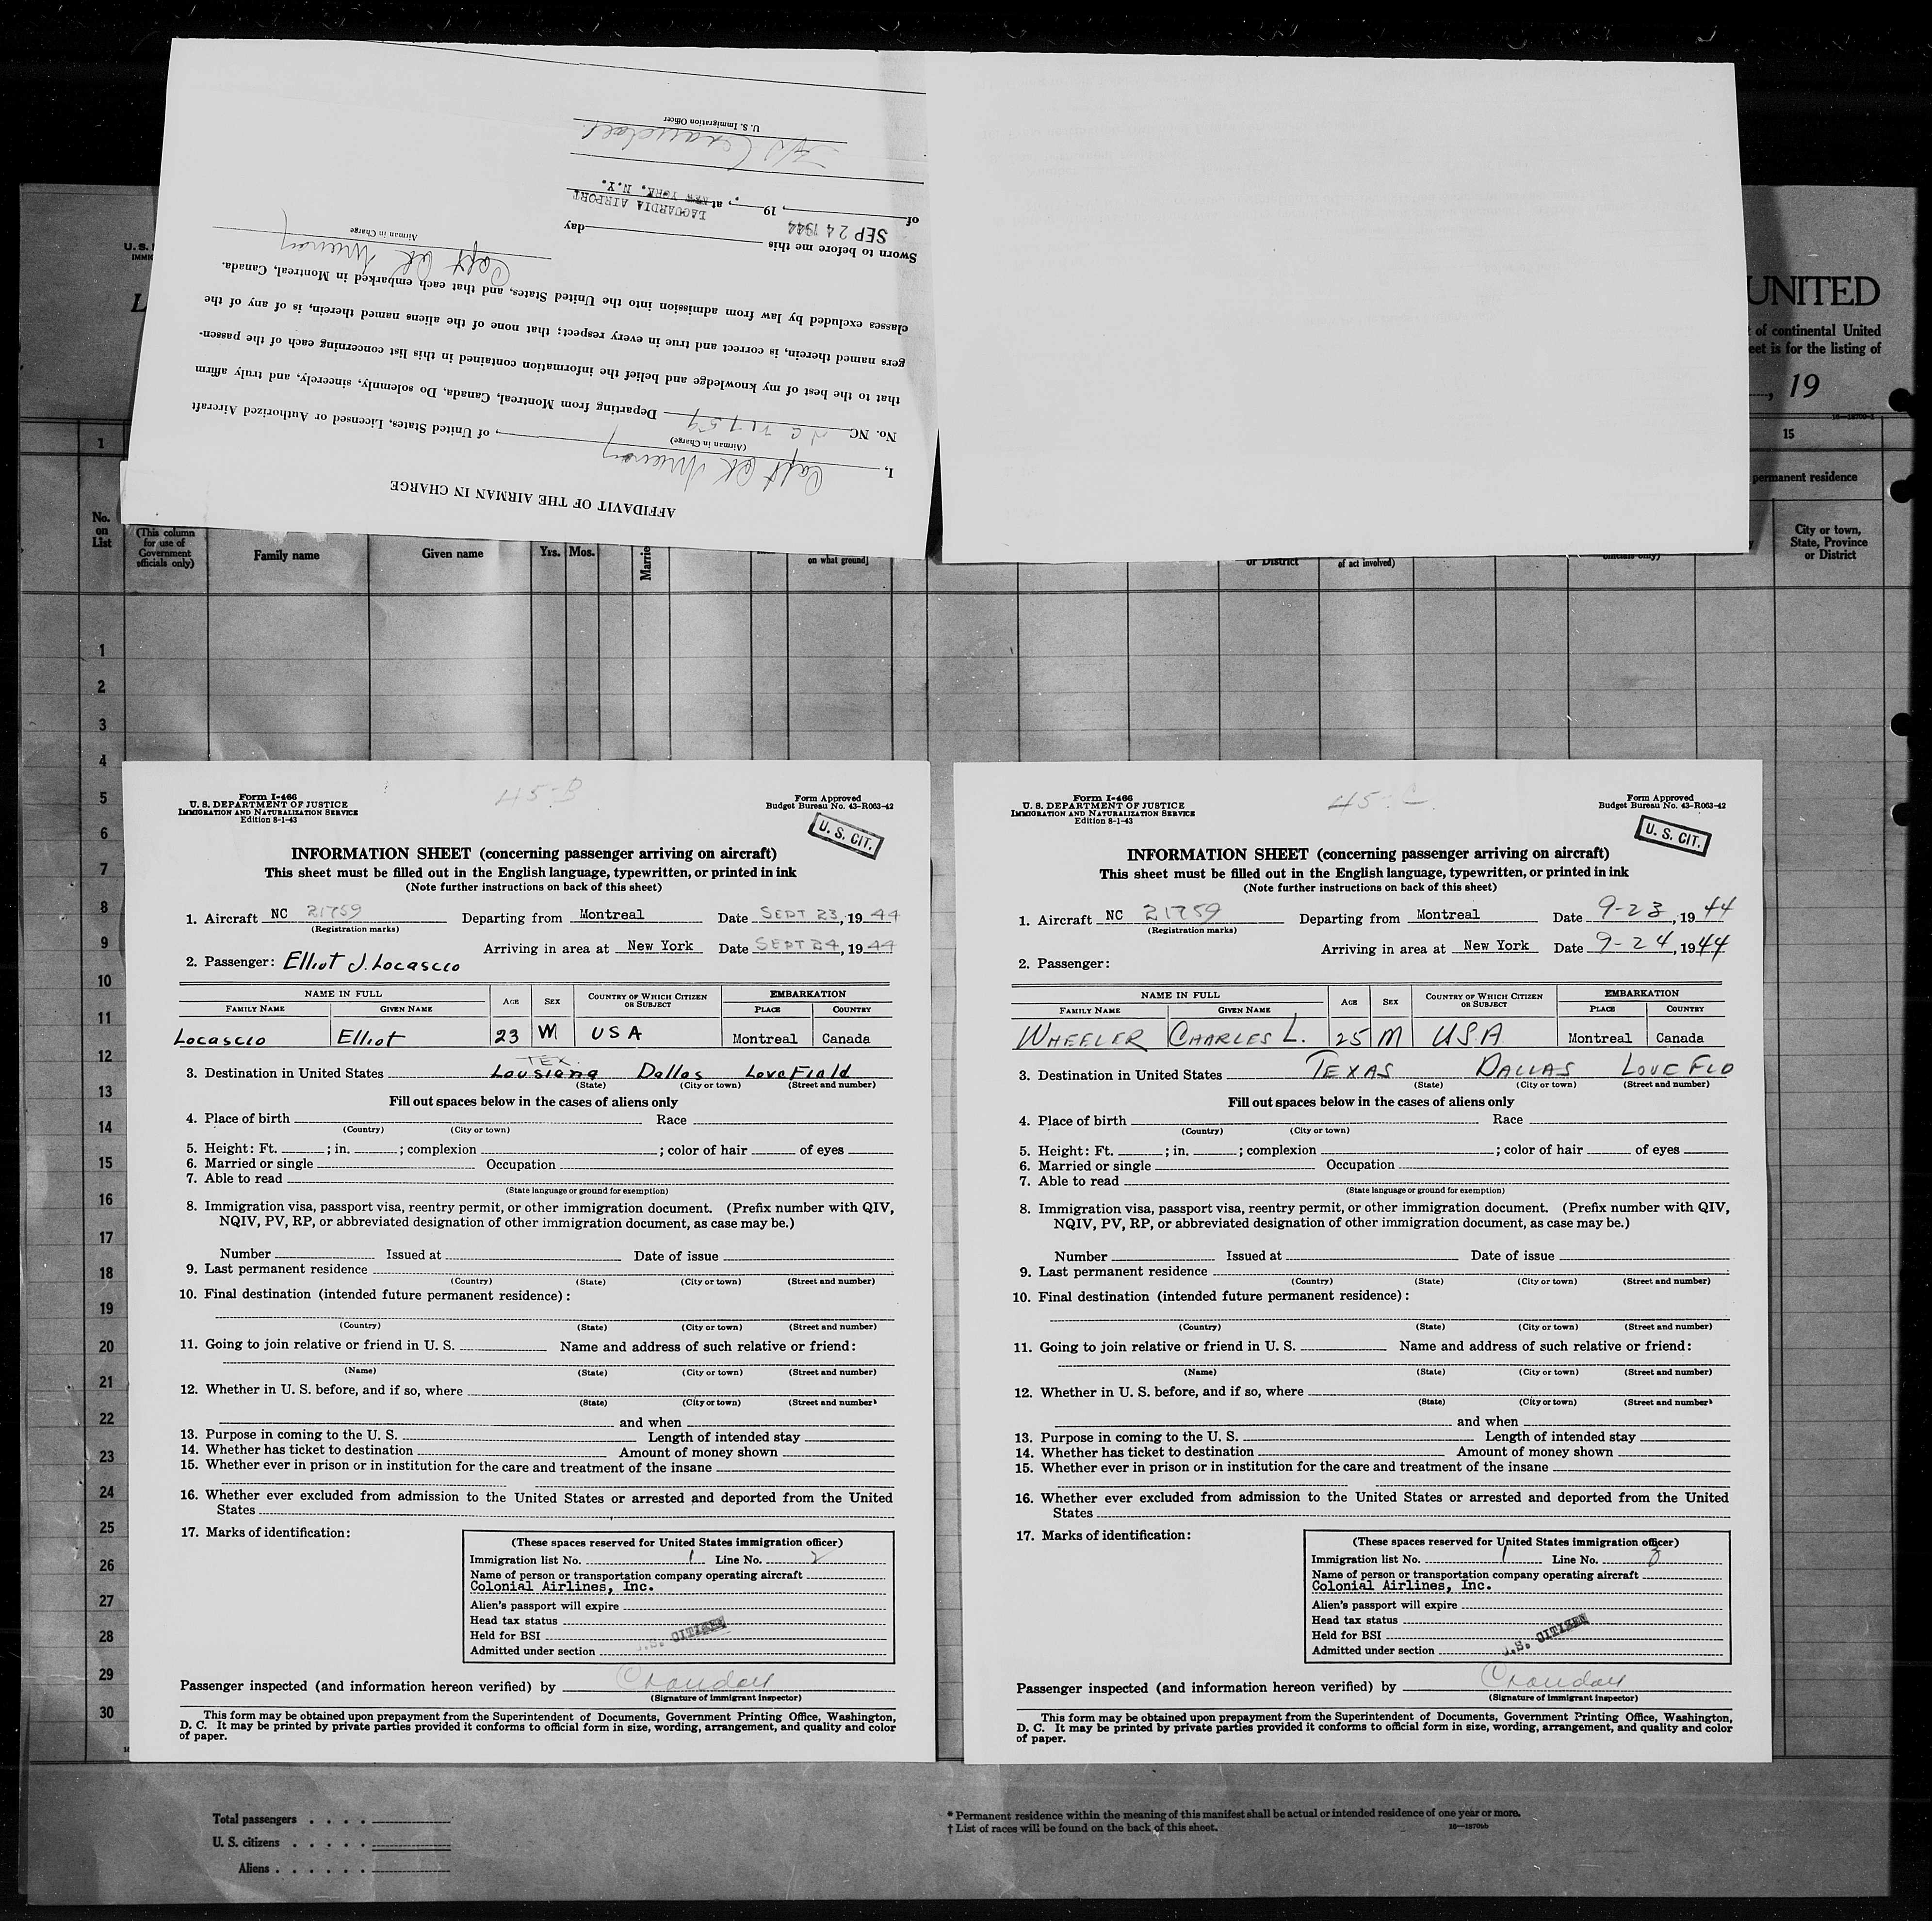 AFFIDAVIT OF THE AIRMAN IN CHARGE
I, Capt CK Murray, of United States, Licensed or Authorized Aircraft
(Airman in Charge)
No. NC Departing from Montreal, Canada, Do solemnly, sincerely, and truly affirm
that to the best of my knowledge and belief the information contained in this list concerning each of the passen-
gers named therein, is correct and true in every respect; that none of the aliens named therein, is of any of the
classes excluded by law from admission into the United States, and that each embarked in Montreal, Canada.
Capt CK Murray
Airman in Charge
Sworn to before me this day
SEP 24 1944 LAGUARDIA AIRPORT
of , 19 , at NEW YORK, N.Y.
Crandall
U. S. Immigration Officer
U. S.
UNITED
of continental United
eet is for the listing of
, 19
1
15
permanent residence
No.
on
List
(This column
for use of
Government
officials only)
Family name
Given name
Yrs.
Mos.
Marrie
on what ground]
or District
of act involved)
officials only)
City or town,
State, Province
or District
1
2
3
4
5
6
7
8
9
10
11
12
13
14
15
16
17
18
19
20
21
22
23
24
25
26
27
28
29
30
45-B
Form I-466
U. S. DEPARTMENT OF JUSTICE
IMMIGRATION AND NATURALIZATION SERVICE
Edition 8-1-43
Form Approved
Budget Bureau No. 43-R063-42
U. S. CIT.
INFORMATION SHEET (concerning passenger arriving on aircraft)
This sheet must be filled out in the English language, typewritten, or printed in ink
(Note further instructions on back of this sheet)
1. Aircraft NC 21759 Departing from Montreal Date SEPT 23, 1944
(Registration marks)
Arriving in area at New York Date SEPT 24, 1944
2. Passenger: Elliot J. Locascio
NAME IN FULL
FAMILY NAME
GIVEN NAME
AGE
SEX
COUNTRY OF WHICH CITIZEN
OR SUBJECT
EMBARKATION
PLACE
COUNTRY
Locascio Elliot 23 M USA Montreal Canada
TEX.
3. Destination in United States Lousiana Dallas Love Field
(State) (City or town) (Street and number)
Fill out spaces below in the cases of aliens only
4. Place of birth Race
(Country) (City or town)
5. Height: Ft. ; in. ; complexion ; color of hair of eyes
6. Married or single Occupation
7. Able to read
(State language or ground for exemption)
8. Immigration visa, passport visa, reentry permit, or other immigration document. (Prefix number with QIV,
NQIV, PV, RP, or abbreviated designation of other immigration document, as case may be.)
Number Issued at Date of issue
9. Last permanent residence
(Country) (State) (City or town) (Street and number)
10. Final destination (intended future permanent residence):
(Country) (State) (City or town) (Street and number)
11. Going to join relative or friend in U. S. Name and address of such relative or friend:
(Name) (State) (City or town) (Street and number)
12. Whether in U. S. before, and if so, where
(State) (City or town) (Street and number)
and when
13. Purpose in coming to the U. S. Length of intended stay
14. Whether has ticket to destination Amount of money shown
15. Whether ever in prison or in institution for the care and treatment of the insane
16. Whether ever excluded from admission to the United States or arrested and deported from the United
States
17. Marks of identification:
(These spaces reserved for United States immigration officer)
Immigration list No. 1 Line No. 2
Name of person or transportation company operating aircraft
Colonial Airlines, Inc.
Alien's passport will expire
Head tax status
Held for BSI
U.S. CITIZEN
Admitted under section
Passenger inspected (and information hereon verified) by Crandall
(Signature of immigrant inspector)
This form may be obtained upon prepayment from the Superintendent of Documents, Government Printing Office, Washington,
D. C. It may be printed by private parties provided it conforms to official form in size, wording, arrangement, and quality and color
of paper.
45-C
Form I-466
U. S. DEPARTMENT OF JUSTICE
IMMIGRATION AND NATURALIZATION SERVICE
Edition 8-1-43
Form Approved
Budget Bureau No. 43-R063-42
U. S. CIT.
INFORMATION SHEET (concerning passenger arriving on aircraft)
This sheet must be filled out in the English language, typewritten, or printed in ink
(Note further instructions on back of this sheet)
1. Aircraft NC 21759 Departing from Montreal Date 9-23, 1944
(Registration marks)
Arriving in area at New York Date 9-24, 1944
2. Passenger:
NAME IN FULL
FAMILY NAME
GIVEN NAME
AGE
SEX
COUNTRY OF WHICH CITIZEN
OR SUBJECT
EMBARKATION
PLACE
COUNTRY
WHEELER CHARLES L. 25 M USA Montreal Canada
3. Destination in United States TEXAS DALLAS LOVE FLD
(State) (City or town) (Street and number)
Fill out spaces below in the cases of aliens only
4. Place of birth Race
(Country) (City or town)
5. Height: Ft. ; in. ; complexion ; color of hair of eyes
6. Married or single Occupation
7. Able to read
(State language or ground for exemption)
8. Immigration visa, passport visa, reentry permit, or other immigration document. (Prefix number with QIV,
NQIV, PV, RP, or abbreviated designation of other immigration document, as case may be.)
Number Issued at Date of issue
9. Last permanent residence
(Country) (State) (City or town) (Street and number)
10. Final destination (intended future permanent residence):
(Country) (State) (City or town) (Street and number)
11. Going to join relative or friend in U. S. Name and address of such relative or friend:
(Name) (State) (City or town) (Street and number)
12. Whether in U. S. before, and if so, where
(State) (City or town) (Street and number)
and when
13. Purpose in coming to the U. S. Length of intended stay
14. Whether has ticket to destination Amount of money shown
15. Whether ever in prison or in institution for the care and treatment of the insane
16. Whether ever excluded from admission to the United States or arrested and deported from the United
States
17. Marks of identification:
(These spaces reserved for United States immigration officer)
Immigration list No. 1 Line No. 3
Name of person or transportation company operating aircraft
Colonial Airlines, Inc.
Alien's passport will expire
Head tax status
Held for BSI
U.S. CITIZEN
Admitted under section
Passenger inspected (and information hereon verified) by Crandall
(Signature of immigrant inspector)
This form may be obtained upon prepayment from the Superintendent of Documents, Government Printing Office, Washington,
D. C. It may be printed by private parties provided it conforms to official form in size, wording, arrangement, and quality and color
of paper.
Total passengers
U. S. citizens
Aliens
* Permanent residence within the meaning of this manifest shall be actual or intended residence of one year or more.
† List of races will be found on the back of this sheet.